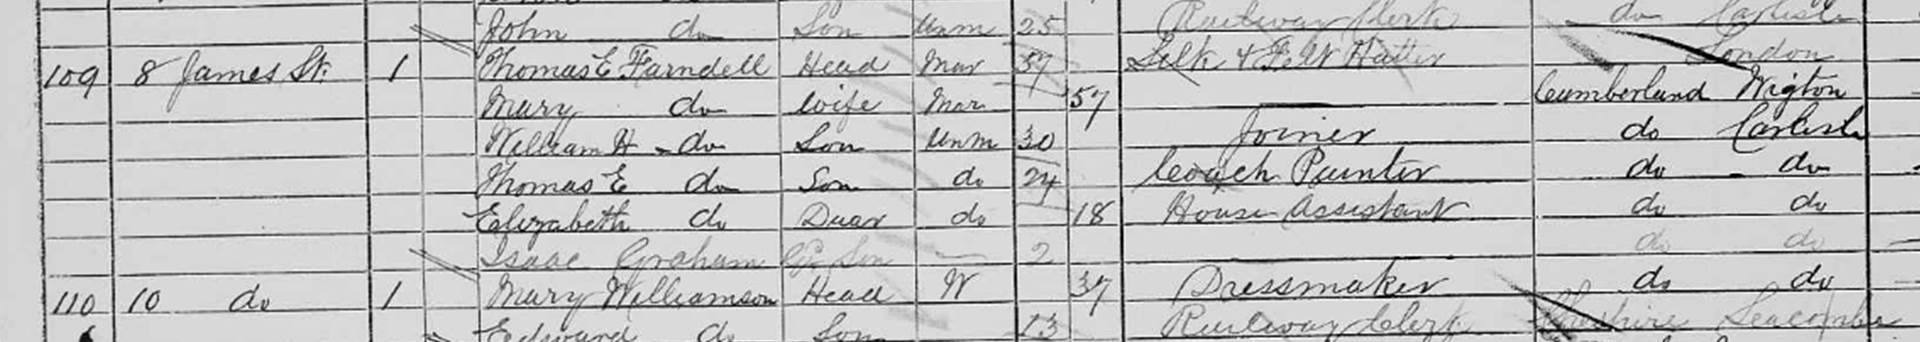 John do Son Unm 25 Railway Clerk do Carlisle
109 8 James St. 1 Thomas E Farndell Head Mar 57 Silk & Felt Hatter London
Mary do Wife Mar 57 Cumberland Wigton
William H do Son Unm 30 Joiner do Carlisle
Thomas E do Son do 24 Coach Painter do do
Elizabeth do Daur do 18 House Assistant do do
Isaac Graham Gr Son 2 do do
110 10 do 1 Mary Williamson Head W 37 Dressmaker do do
Edward do Son 13 Railway Clerk Cheshire Seacombe